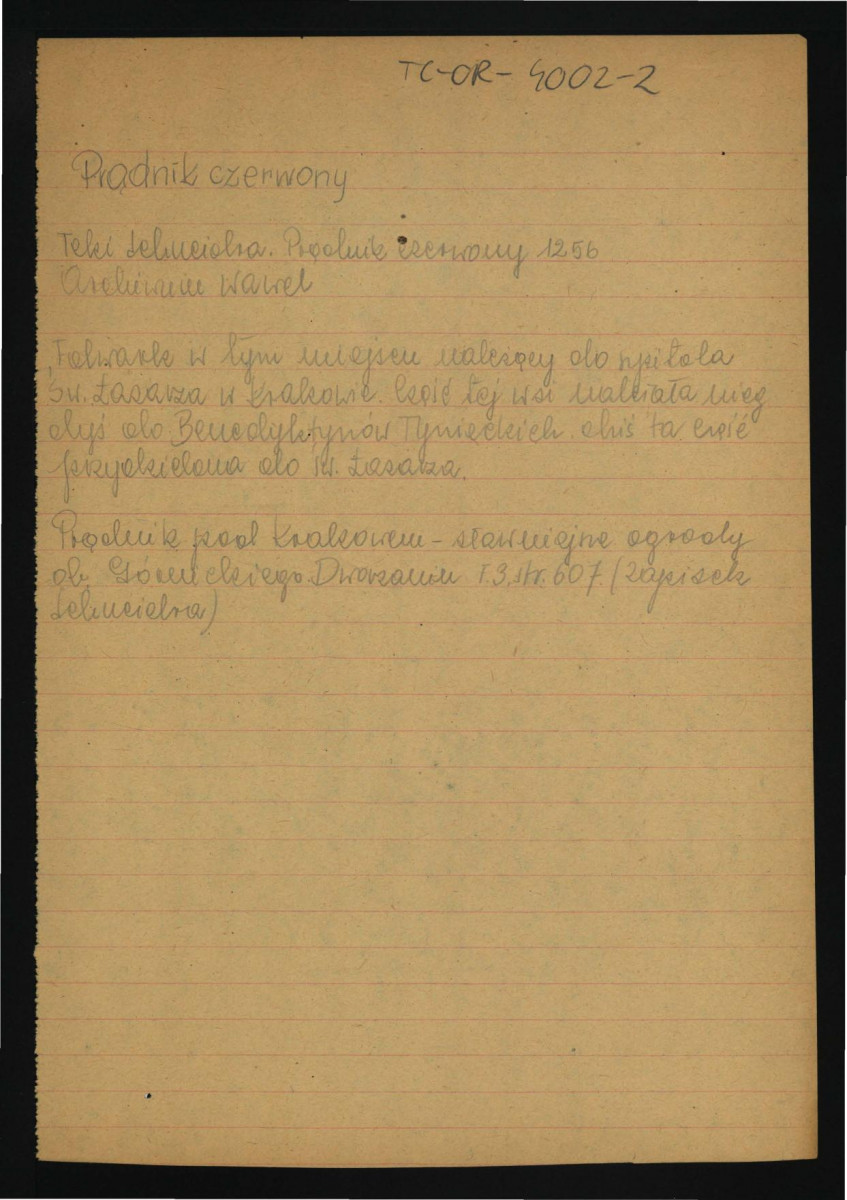 TC-OR-4002-2
Prądnik czerwony
Teki Schneidra. Prądnik czerwony 1256
Archiwum Wawel
Folwark w tym miejscu należący do szpitala
św. Łazarza w Krakowie. Część tej wsi należała nieg
dyś do Benedyktynów Tynieckich. dziś ta część
przydzielona do św. Łazarza.
Prądnik pod Krakowem - sławniejsze ogrody
ob. Górnickiego Dworzanin T.3. str. 607 (zapisek
Schneidra)